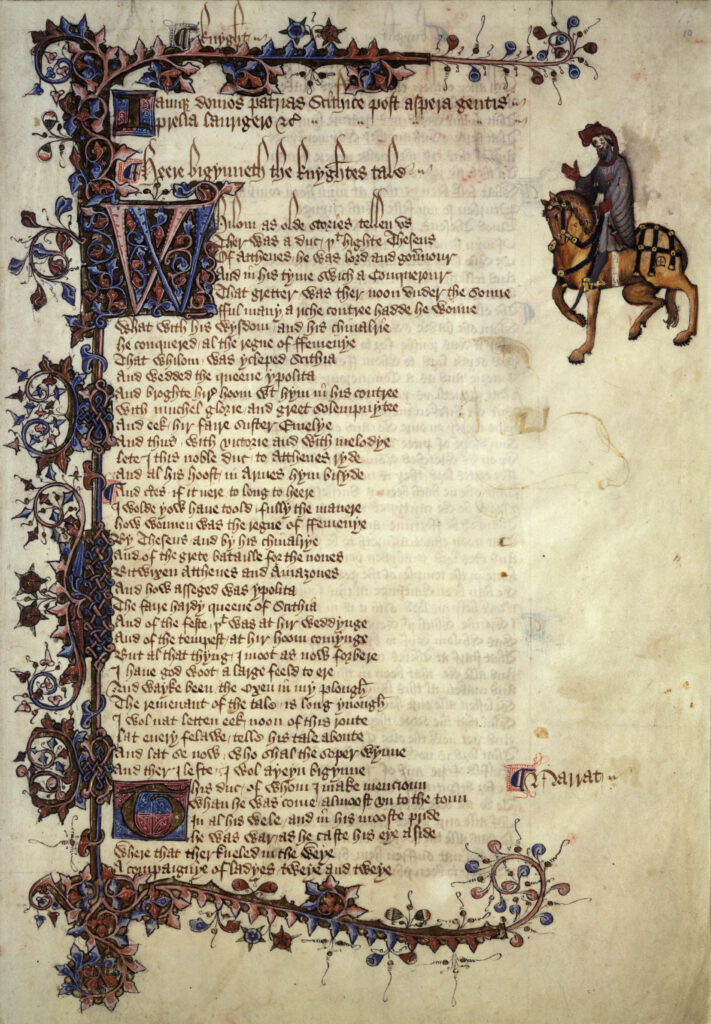 ¶ Knyght
Iamque domos patrias Scithice post aspera gentis
prelia laurigero &c
¶ Heere bigynneth the knyghtes tale
Whilom as olde stories tellen vs
Ther was a duc þt highte Theseus
Of Atthenes he was lord and gouernour
And in his tyme swich a Conquerour
That gretter was ther noon vnder the sonne
fful many a riche contree hadde he wonne
What with his wysdom and his chiualrie
he conquered al the regne of ffemenye
That whilom was ycleped Scithia
And wedded the queene ypolita
And broghte hire hoom wt hym in his contree
With muchel glorie and greet solempnytee
And eek hir faire suster Emelye
And thus with victorie and with melodye
lete I this noble duc to Atthenes ryde
And al his hoost in Armes hym bisyde
¶ And certes if it nere to long to heere
I wolde yow haue toold fully the manere
how wonnen was the regne of ffemenye
By Theseus and by his chiualrye
And of the grete bataille for the nones
Bitwixen Atthenes and Amazones
And how asseged was ypolita
The faire hardy queene of Scithia
And of the feste þt was at hir weddynge
And of the tempest at hir hoom comynge
But al that thyng I moot as now forbere
I haue god woot a large feeld to ere
And wayke been the Oxen in my plough
The remenant of the tale is long ynough
I wol nat letten eek noon of this route
lat euery felawe telle his tale aboute
And lat se now who shal the soper wynne
And ther I lefte I wol ayeyn bigynne
This duc of whom I make mencioun
¶ Narrat
Whan he was come almoost vn to the toun
In al his wele and in his mooste pride
he was war as he caste his eye aside
Where that ther kneled in the weye
A compaignye of ladyes tweye and tweye